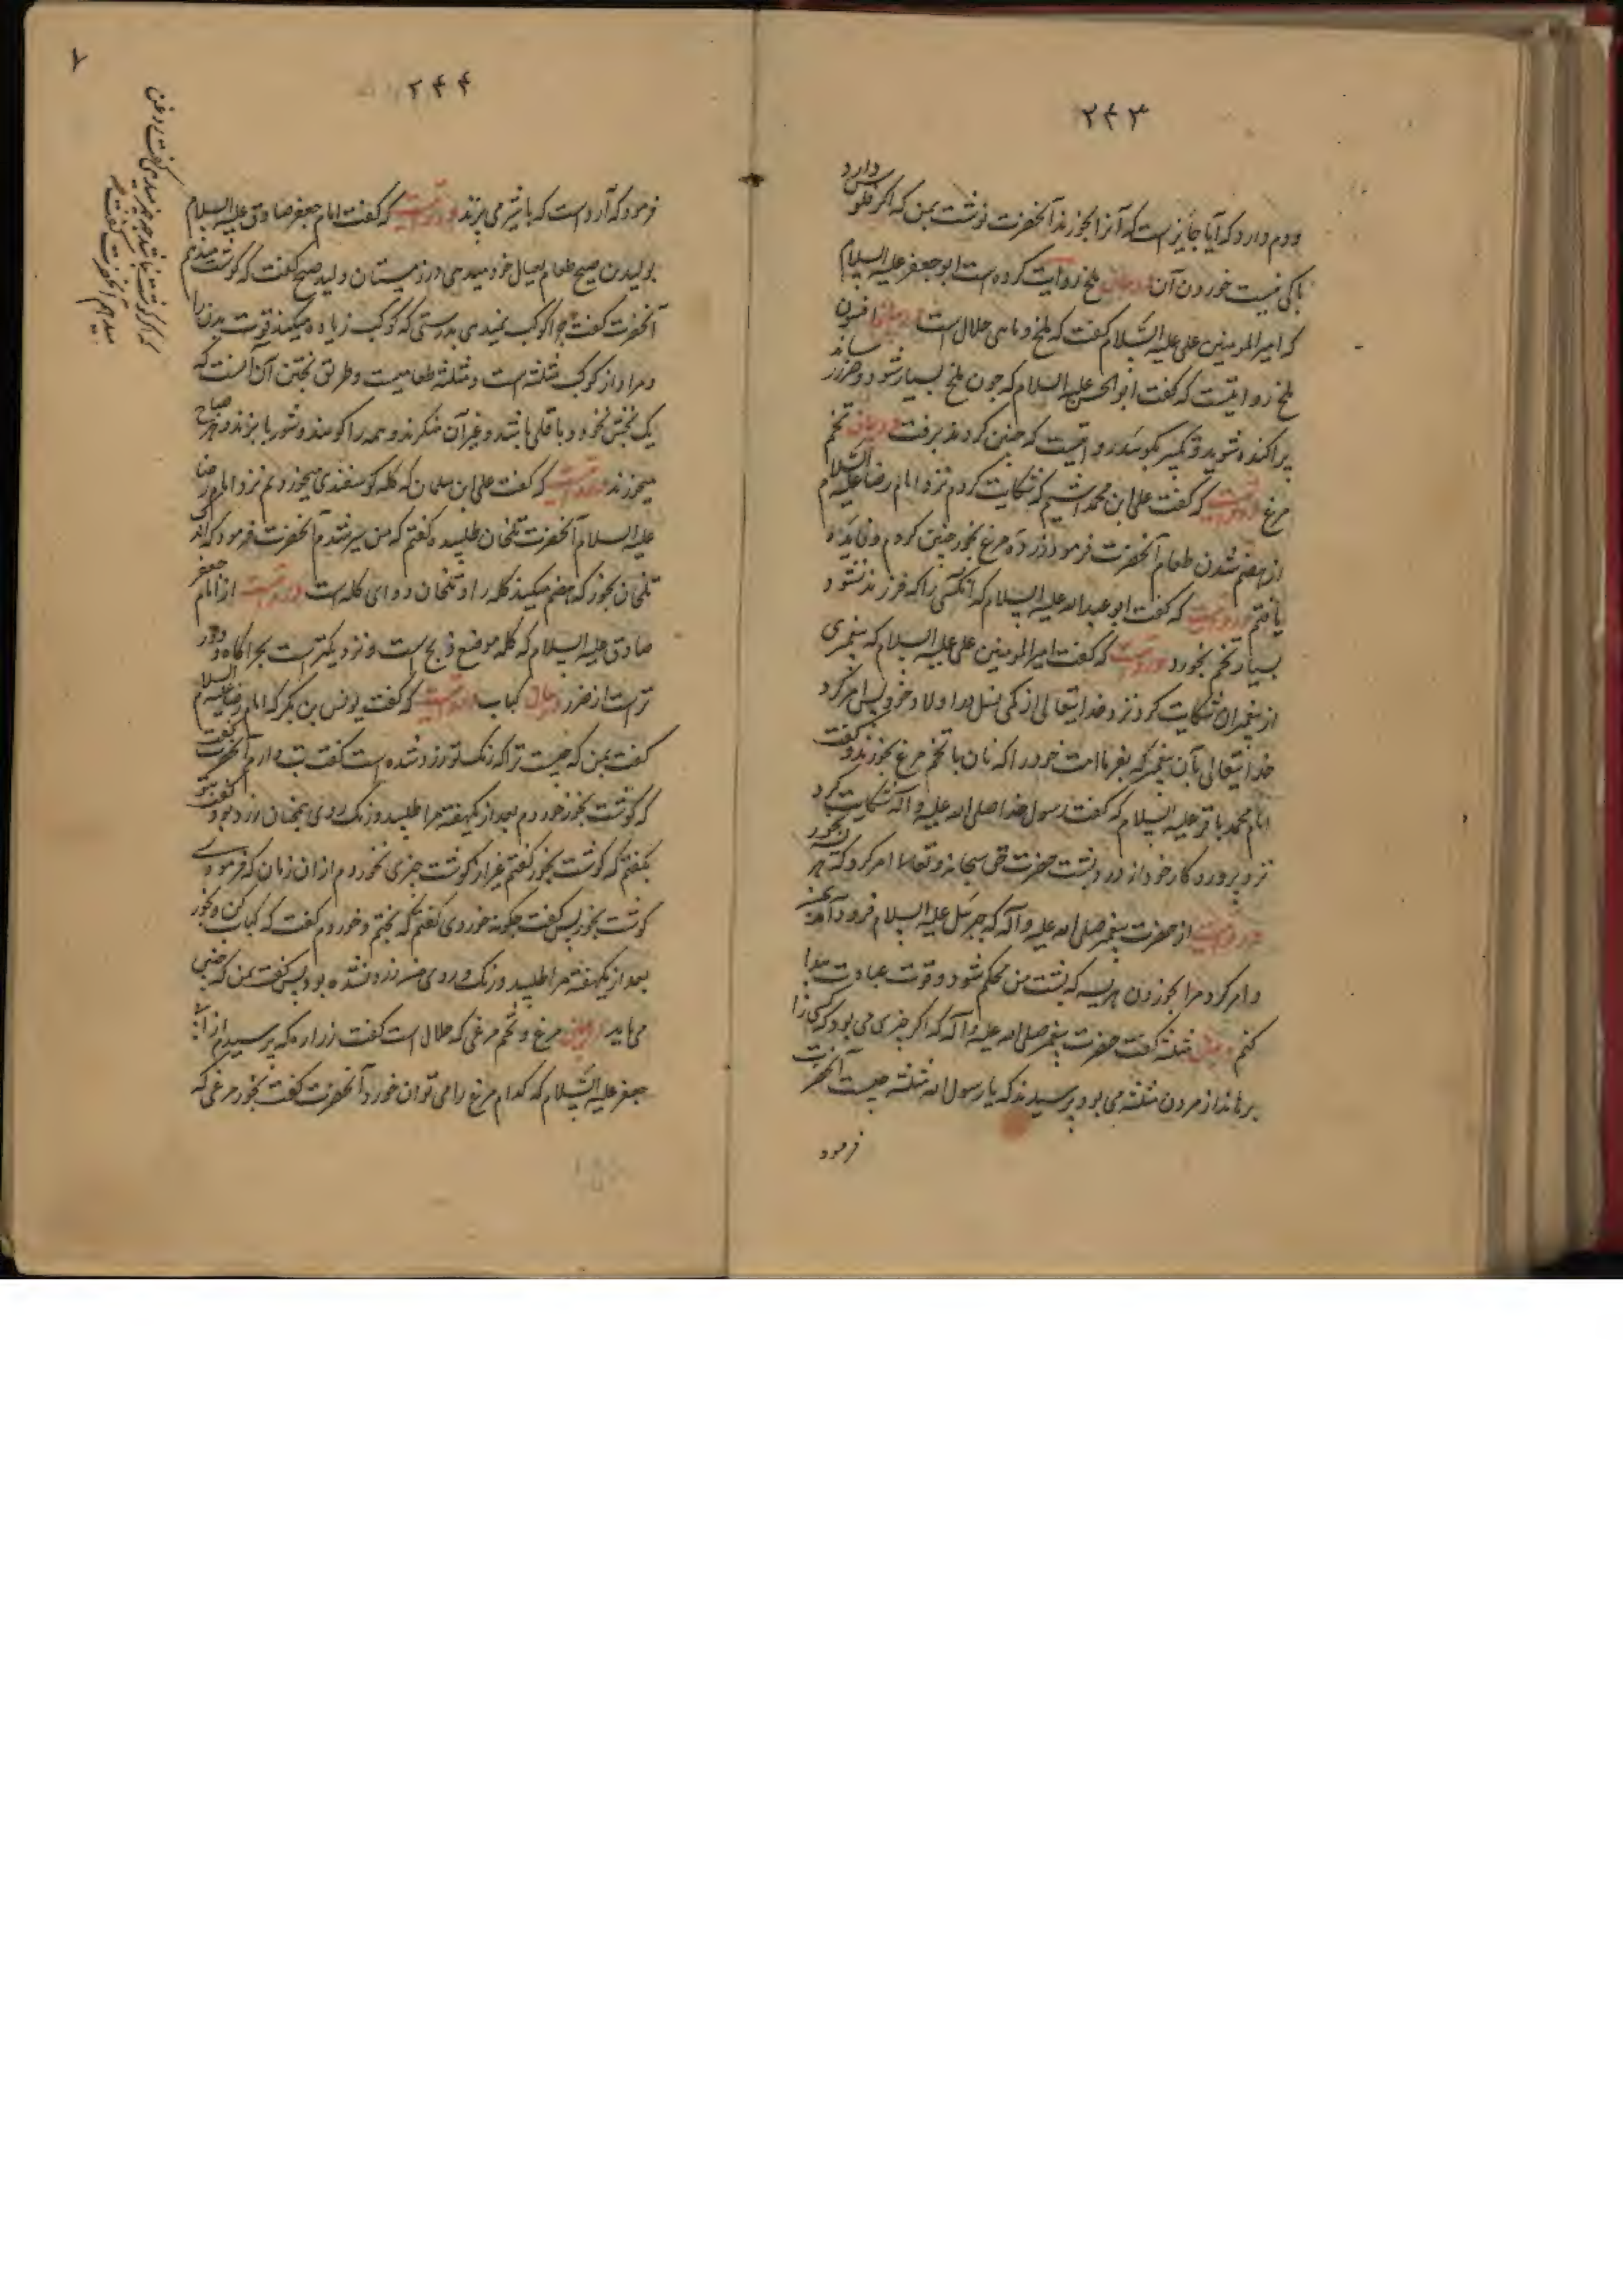 ۲۴۳
و دم دارد که آیا جایز است که آنرا بخورند آنحضرت نوشت بمن که اگر فلوس دارد
باکی نیست خوردن آن در بیان ملخ روایت کرده است ابو جعفر علیه السلام
که امیر المومنین علی علیه السلام گفت که ملخ و ماهی حلال است در بیان افسون
ملخ روایتست که گفت ابو الحسن علیه السلام که چون ملخ بسیار شود و ضرر رساند
پراکنده شوید و تکبیر بگویید روایتست که چنین کردند برفت در بیان تخم
مرغ روایتست که گفت علی ابن محمد که شکایت کردم نزد امام رضا علیه السلام
از هضم نشدن طعام آنحضرت فرمود زرده مرغ بخور چنین کردم و فایده
یافتم روایتست که گفت ابو عبد الله علیه السلام که آنکسی را که فرزند نشود
بسیار تخم بخورد روایتست که گفت امیر المومنین علی علیه السلام که پیغمبری
از پیغمبران شکایت کرد نزد خدایتعالی از کمی نسل و اولاد خود پس امر کرد
خدایتعالی بآن پیغمبر که بفرما امت خود را که نان با تخم مرغ بخورند و گفت
امام محمد باقر علیه السلام که گفت رسول خدا صلی الله علیه و آله شکایت کرد
نزد پروردگار خود از درد پشت حضرت حق سبحانه و تعالی امر کرد که بخور
از حضرت پیغمبر صلی الله علیه و آله که جبرئیل علیه السلام فرود آمد
و امر کرد مرا بخوردن هریسه که پشت من محکم شود و قوت عبادت پیدا
کنم در بیان مثلثه گفت حضرت پیغمبر صلی الله علیه و آله که اگر چیزی می بود که کسی را
برهاند از مردن مثلثه می بود پرسیدند که یا رسول الله مثلثه چیست آنحضرت
فرمود
۲۴۴
۷
فرمود که آرد است که با شیر می پزند روایتست که گفت امام جعفر صادق علیه السلام
بولید بن صبیح طعام بعیال خود میدهی در زمستان ولید صبیح گفت که گوشت میدهم
که اگر گوشت نباشد چه چیز میدهی گفت روغن
میدهم آنحضرت گفت
آنحضرت گفت چرا کوکب نمیدهی بدرستی که کوکب زیاده میکند قوت بدن را
و مراد از کوکب مثلثه است و مثلثه طعامیست و طریق پختن آن آنست که
یک بخش نخود و باقلی باشد و غیر آن بگیرند و همه را کوبند و شوربا بپزند و هر صباح
میخورند روایتست که گفت علی ابن سلمان که کله گوسفندی میخوردیم نزد امام رضا
علیه السلام آنحضرت تلخان طلبیده گفتم که من سیر شدم آنحضرت فرمود که اندک
تلخان بخور که هضم میکند کله را و تلخان دوای کله است روایتست از امام جعفر
صادق علیه السلام که کله موضع ذبح است و نزدیکتر است بچراگاه و دور
تر است از ضرر در بیان کباب روایتست که گفت یونس بن بکر که امام رضا علیه السلام
گفت بمن که چیست ترا که رنگ تو زرد شده است گفت تب دارم آنحضرت گفت
که گوشت بخور خوردم بعد از یکهفته مرا طلبید و رنگ روی همچنان زرد بود گفت
نگفتم که گوشت بخور گفتم غیر از گوشت چیزی نخوردم از ان زمان که فرمودی
گوشت بخور پس گفت چگونه خوردی گفتم که پختم و خوردم گفت که کباب کن و بخور
بعد از یکهفته مرا طلبید و رنگ روی من زرد نشده بود پس گفت بمن که چنین
می باید در بیان مرغ و تخم مرغی که حلال است گفت زراره که پرسیدم از
جعفر علیه السلام که کدام مرغ را می توان خورد آنحضرت گفت بخور مرغی که